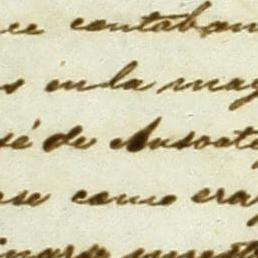 ce contaban
s en la may
sé de Ansoate
ese como era